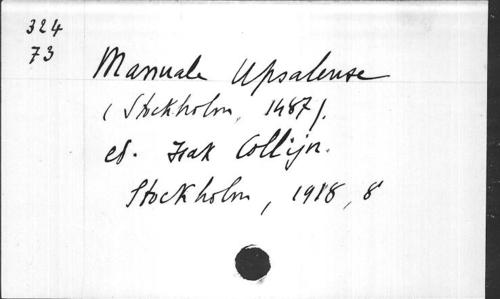 324
73
Manuale Upsalense
(Stockholm, 1487).
ed. Isak Collijn.
Stockholm, 1918, 8